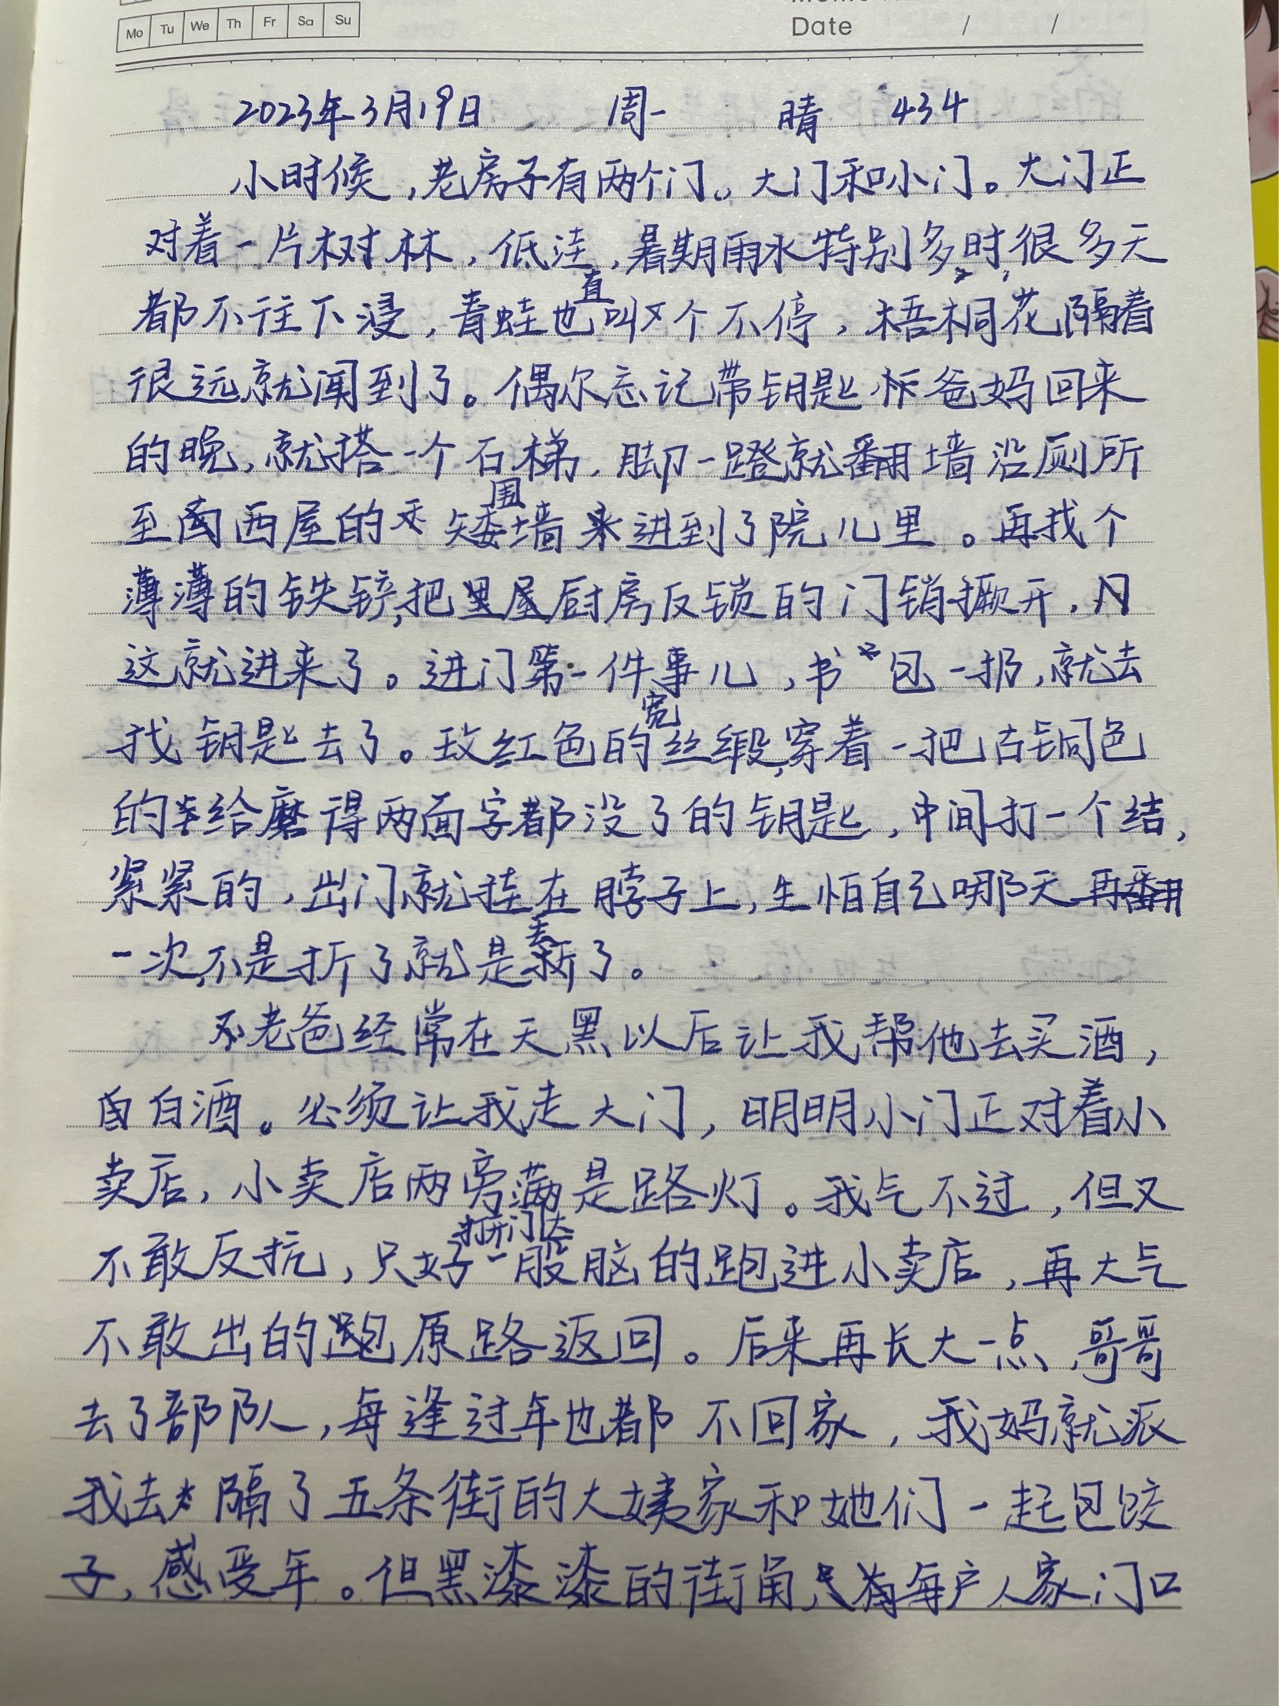 Mo Tu We Th Fr Sa Su
Date / /
2023年3月19日 周一 晴 434
小时候,老房子有两个门。大门和小门。大门正
对着一片树林,低洼,暑期雨水特别多时,很多天
都不往下浸,青蛙也直叫个不停,梧桐花隔着
很远就闻到了。偶尔忘记带钥匙怀爸妈回来
的晚,就搭一个石梯,脚一蹬就翻墙沿厕所
至南西屋的矮围墙来进到了院儿里。再找个
薄薄的铁铲,把里屋厨房反锁的门销撅开,
这就进来了。进门第一件事儿,书包一扔,就去
找钥匙去了。玫红色的宽丝缎,穿着一把古铜色
的给磨得两面字都没了的钥匙,中间打一个结,
紧紧的,出门就挂在脖子上,生怕自己哪天再翻
一次,不是折了就是丢了。
老爸经常在天黑以后让我帮他去买酒,
白酒。必须让我走大门,明明小门正对着小
卖店,小卖店两旁满是路灯。我气不过,但又
不敢反抗,只好打开门灯一股脑的跑进小卖店,再大气
不敢出的跑原路返回。后来再长大一点,哥哥
去了部队,每逢过年也都不回家,我妈就派
我去隔了五条街的大姨家和她们一起包饺
子,感受年。但黑漆漆的街角,只有每户人家门口